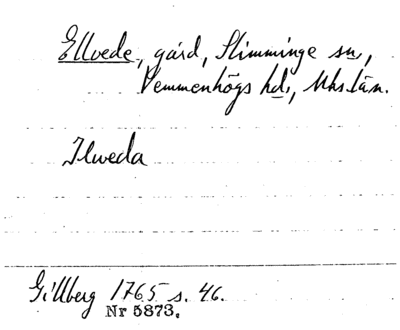 Ellvede, gård, Slimminge sn,
Vemmenhögs hd, Mhs. län.
Ilweda
Gillberg 1765 s. 46.
Nr 5873.